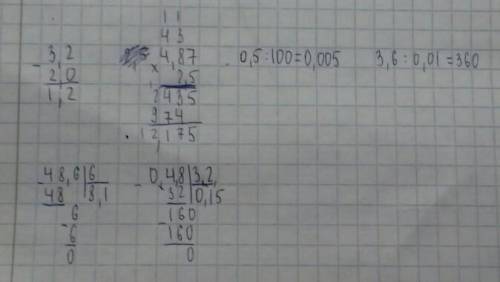 1 1
4 3
- 3,2
2 0
1,2
4,87
× 2,5
2435
974
12,175
0,5:100=0,005
3,6:0,01=360
48,6|6
48 |8,1
- 6
6
0
- 0,4,8|3,2,
32|0,15
- 160
160
0